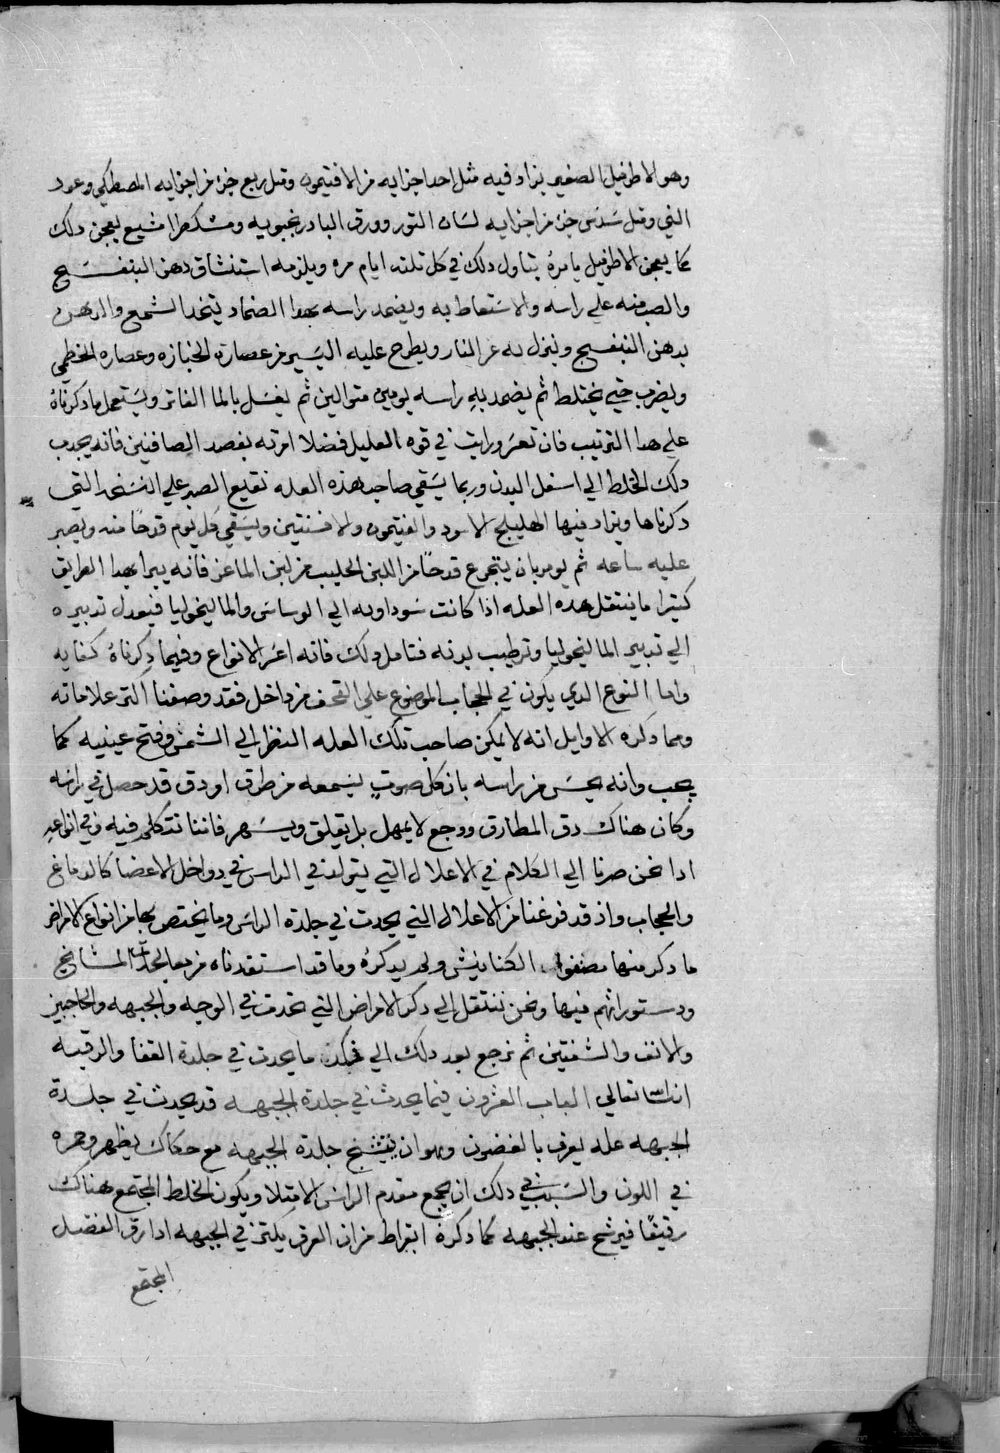 وهو الاطريفل الصغير يزاد فيه مثل احد اجزايه من الافتيمون ومثل ربع جزء من اجزايه المصطكي وعود
الني ومثل سدس جزء من اجزايه لسان الثور وورق البادرنجبويه ومشكطرا مشيع يعجن دلك
كما يعجن الاطريفل يامره يتناول دلك في كل ثلثه ايام مره ويلزمه استنشاق دهن البنفسج
والصب منه علي راسه والاستعاط به ويضمد راسه بهدا الضماد يتخد الشمع والدهن
بدهن البنفسج وينزل به عن النار ويطرح عليه اليسير من عصارة الخبازه وعصاره الخطمي
ويضرب حتي يختلط ثم يضمد به راسه يومين متوالين ثم يغسل بالما الفاتر ويستعمل ما دكرناه
علي هدا الترتيب فان تعسر ورايت في قوه العليل فضلا امرته بفصد الصافنين فانه يجدب
دلك الخلط الي اسفل البدن وربما يسقي صاحب هذه العله نقيع الصبر علي النسخه التي
دكرناها ويزاد فيها الهليلج الاسود والفتيمون والافسنتين ويسقي كل يوم قدحًا منه ويصبر
عليه ساعه ثم يومر بان يتجرع قدحًا من اللبن الحليب من لبن الماعز فانه يبرا بهدا الطريق
كثيرا ما ينتقل هده العله اذا كانت سوداويه الي الوساس والماليخوليا فيعدل تدبيره
الي تدبير الماليخوليا وترطيب بدنه فتامل دلك فانه اعسر الانواع وفيما دكرناه كفايه
واما النوع الدي يكون في الحجاب الموضوع علي القحف من داخل فقد وصفنا اكثر علاماته
ومما دكره الاوايل انه لا يمكن صاحب تلك العله النظر الي الشمس وفتح عينيه كما
يجب وانه يحس من راسه بان كل صوت يسمعه من طرق او دق قد حصل في راسه
وكان هناك دق المطارق ووجع لا يمهل بل يقلق ويسهر فاننا نتكلم فيه وفي انواعه
ادا نحن صرنا الي الكلام في الاعلال التي يتولد في الراس في دواخل الاعضا كالدماغ
والحجاب واذ قد فرغنا من الاعلال التي يحدث في جلدة الراس وما يختص بها من انواع الامراض
ما دكر منها مصنفوا الكنانيش ولم يدكره وما قد استفدناه من معالجات المشايخ
ودستوراتهم فيها ونحن ننتقل الي دكر الامراض التي تحدث في الوجه والجبهه والحاجبين
والانف والشفتين ثم نرجع بعد دلك الي دكر ما يحدث في جلدة القفا والرقبه
ان شا الله تعالي الباب العشرون فيما يحدث في جلدة الجبهه قد يحدث في جلدة
الجبهه عله يعرف بالغضون وهو ان يتشنج جلدة الجبهه مع حكاك يظهر وحمره
في اللون والسبب في دلك ان يجمع مقدم الراس الامتلا ويكون الخلط المجتمع هناك
رقيقًا فيرشح عند الجبهه كما دكره ابقراط من ان العرق يكثر في الجبهه ادا رق الفضل
المجتمع